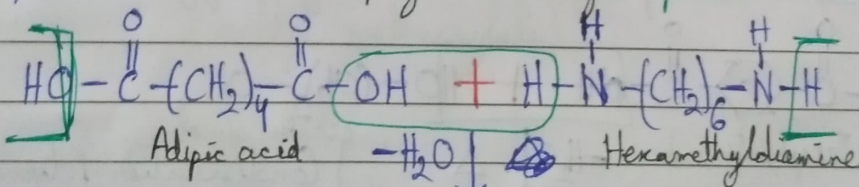 O O H H
HO-C-(CH2)4-C-OH + H-N-(CH2)6-N-H
Adipic acid -H2O Hexamethyldiamine